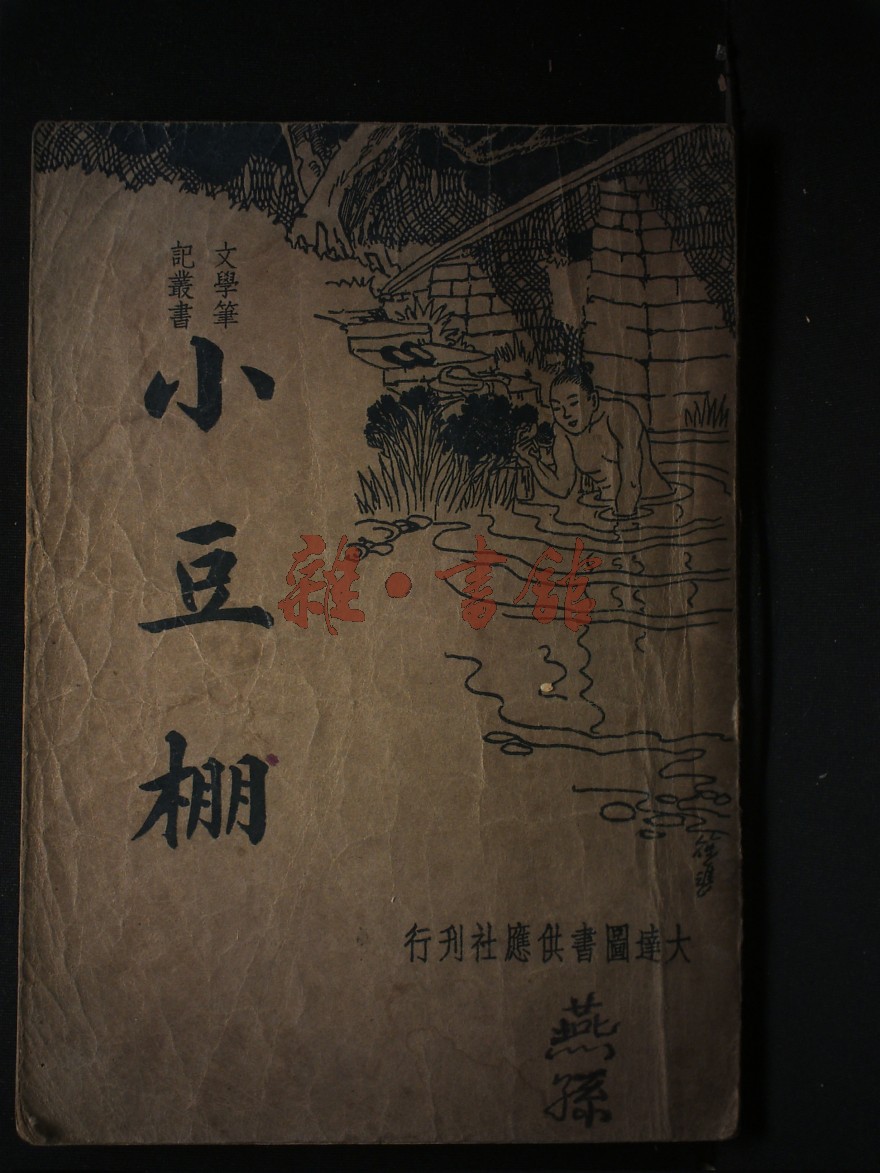 文學筆
記叢書
小豆棚
雜·書館
大達圖書供應社刊行
燕孫